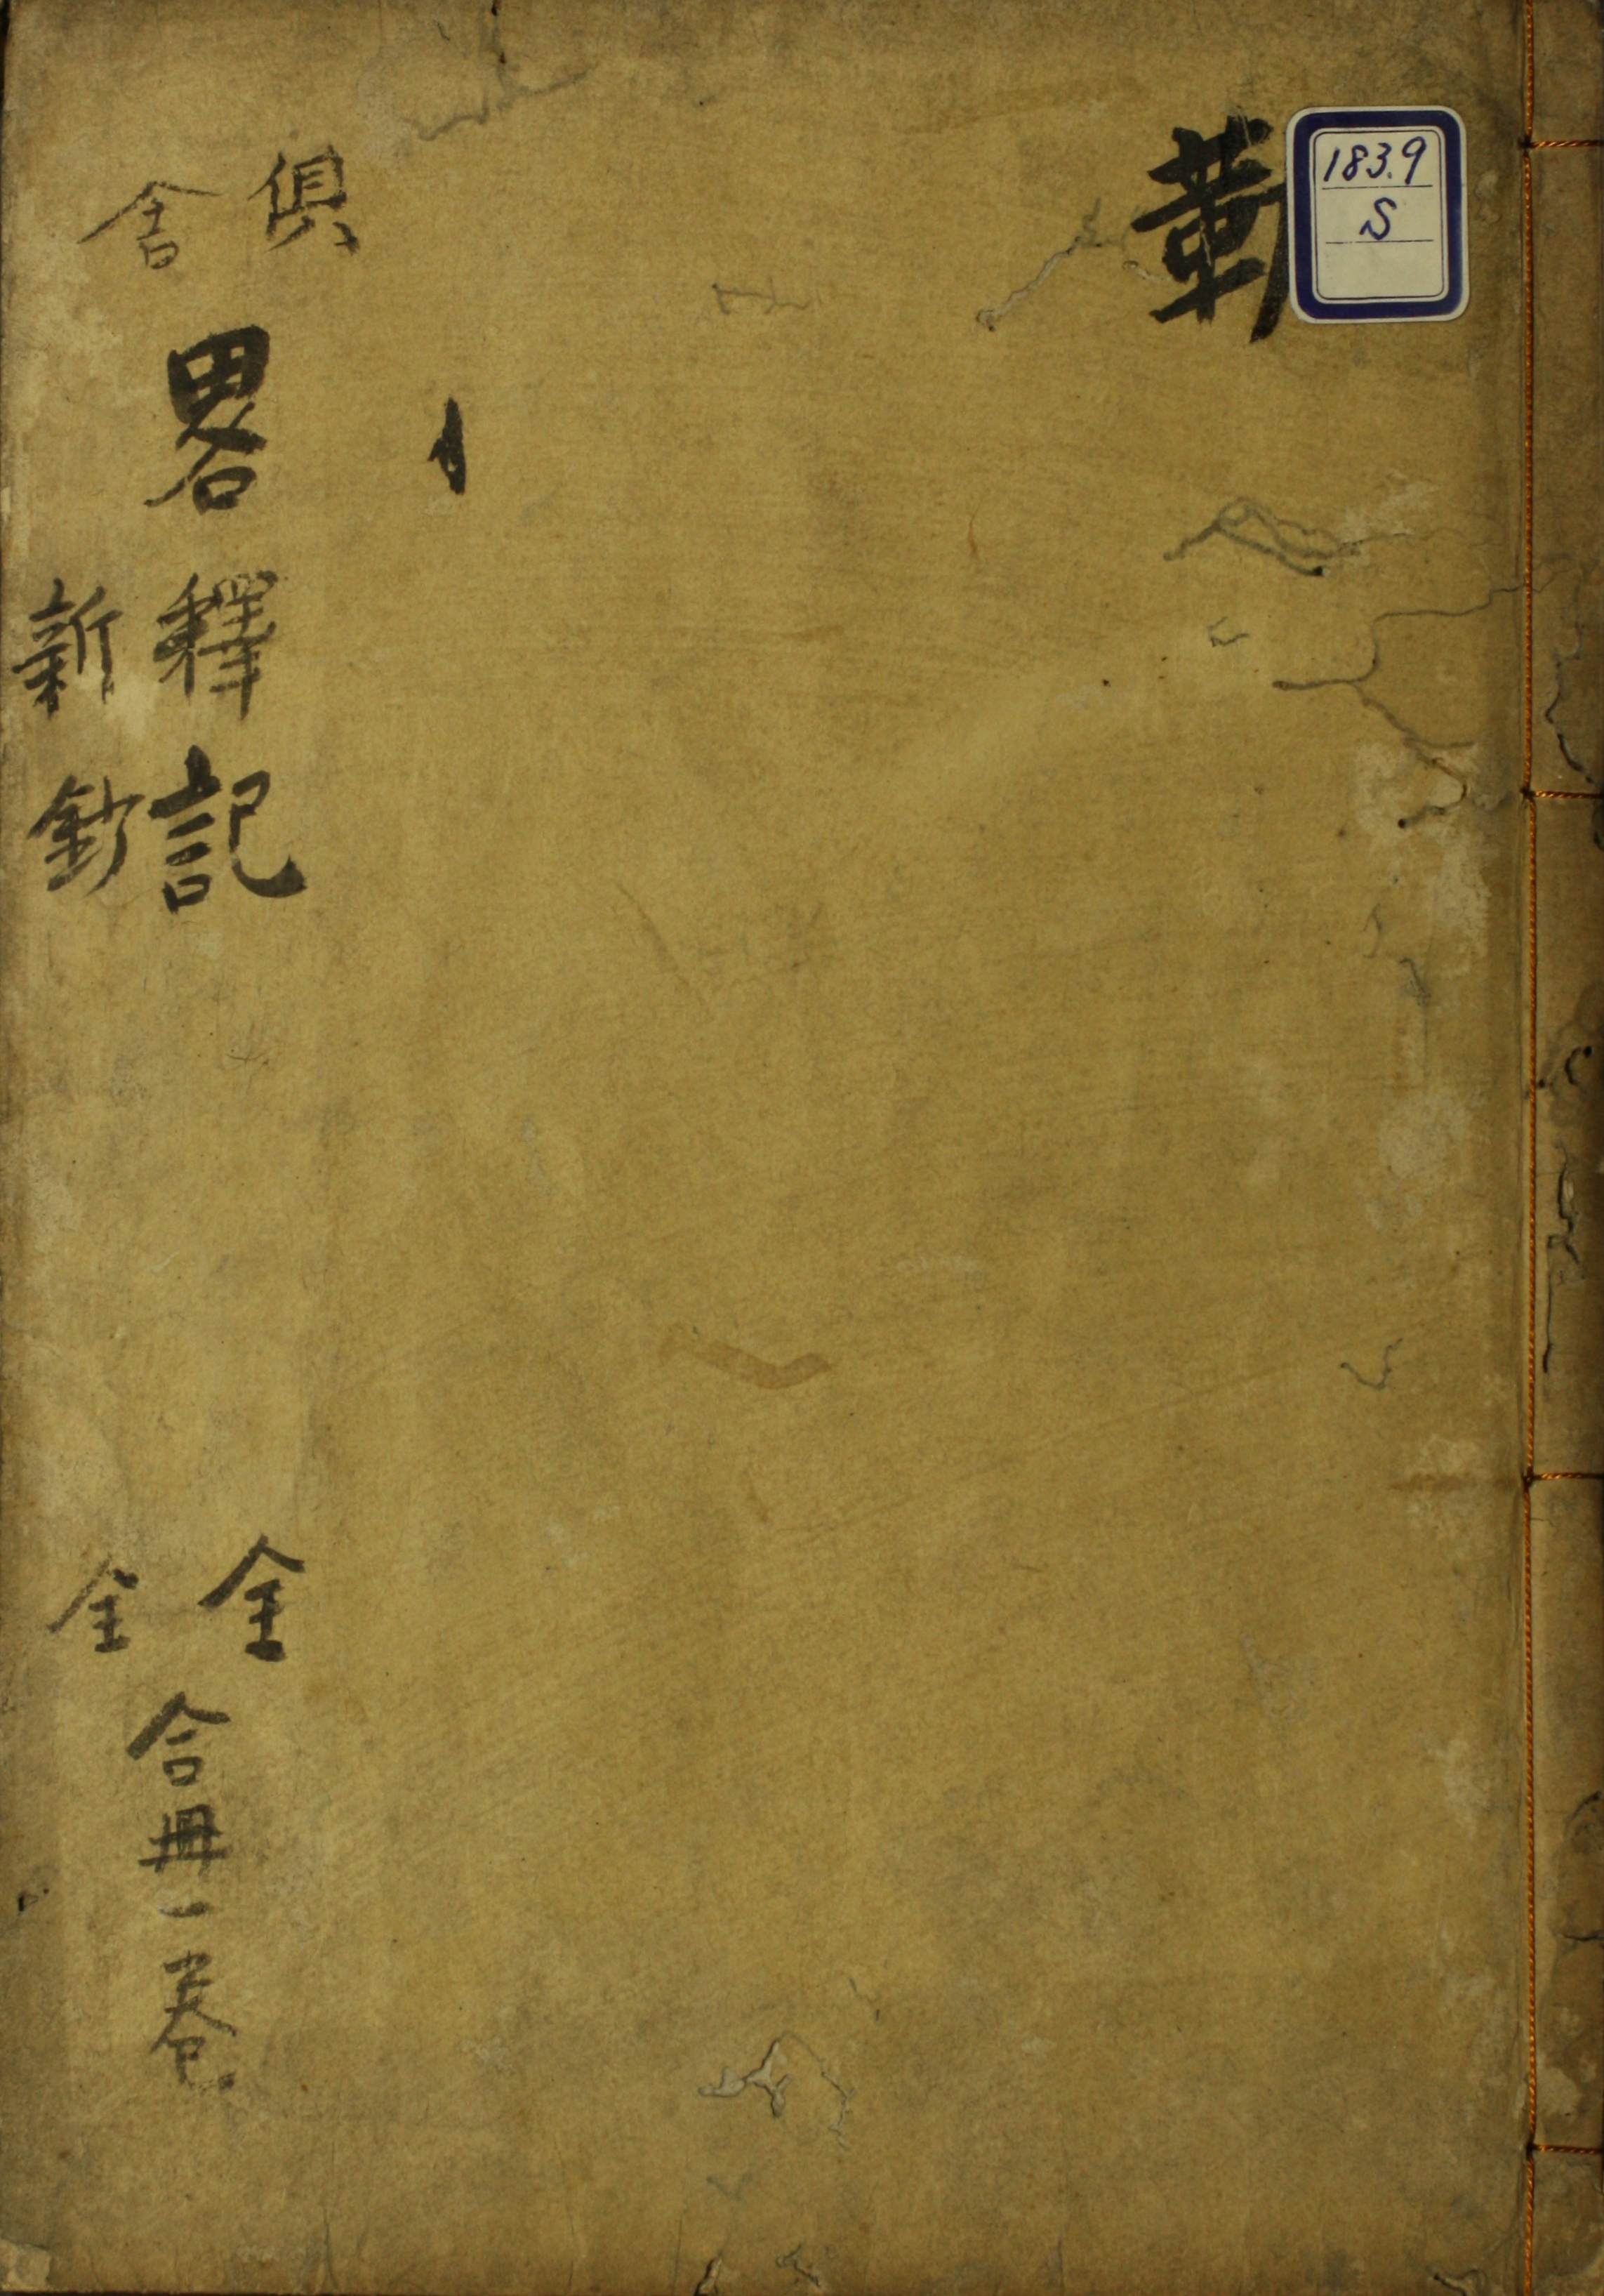 183.9
S
俱舍
畧釋記 全
新鈔 全
合冊一巻